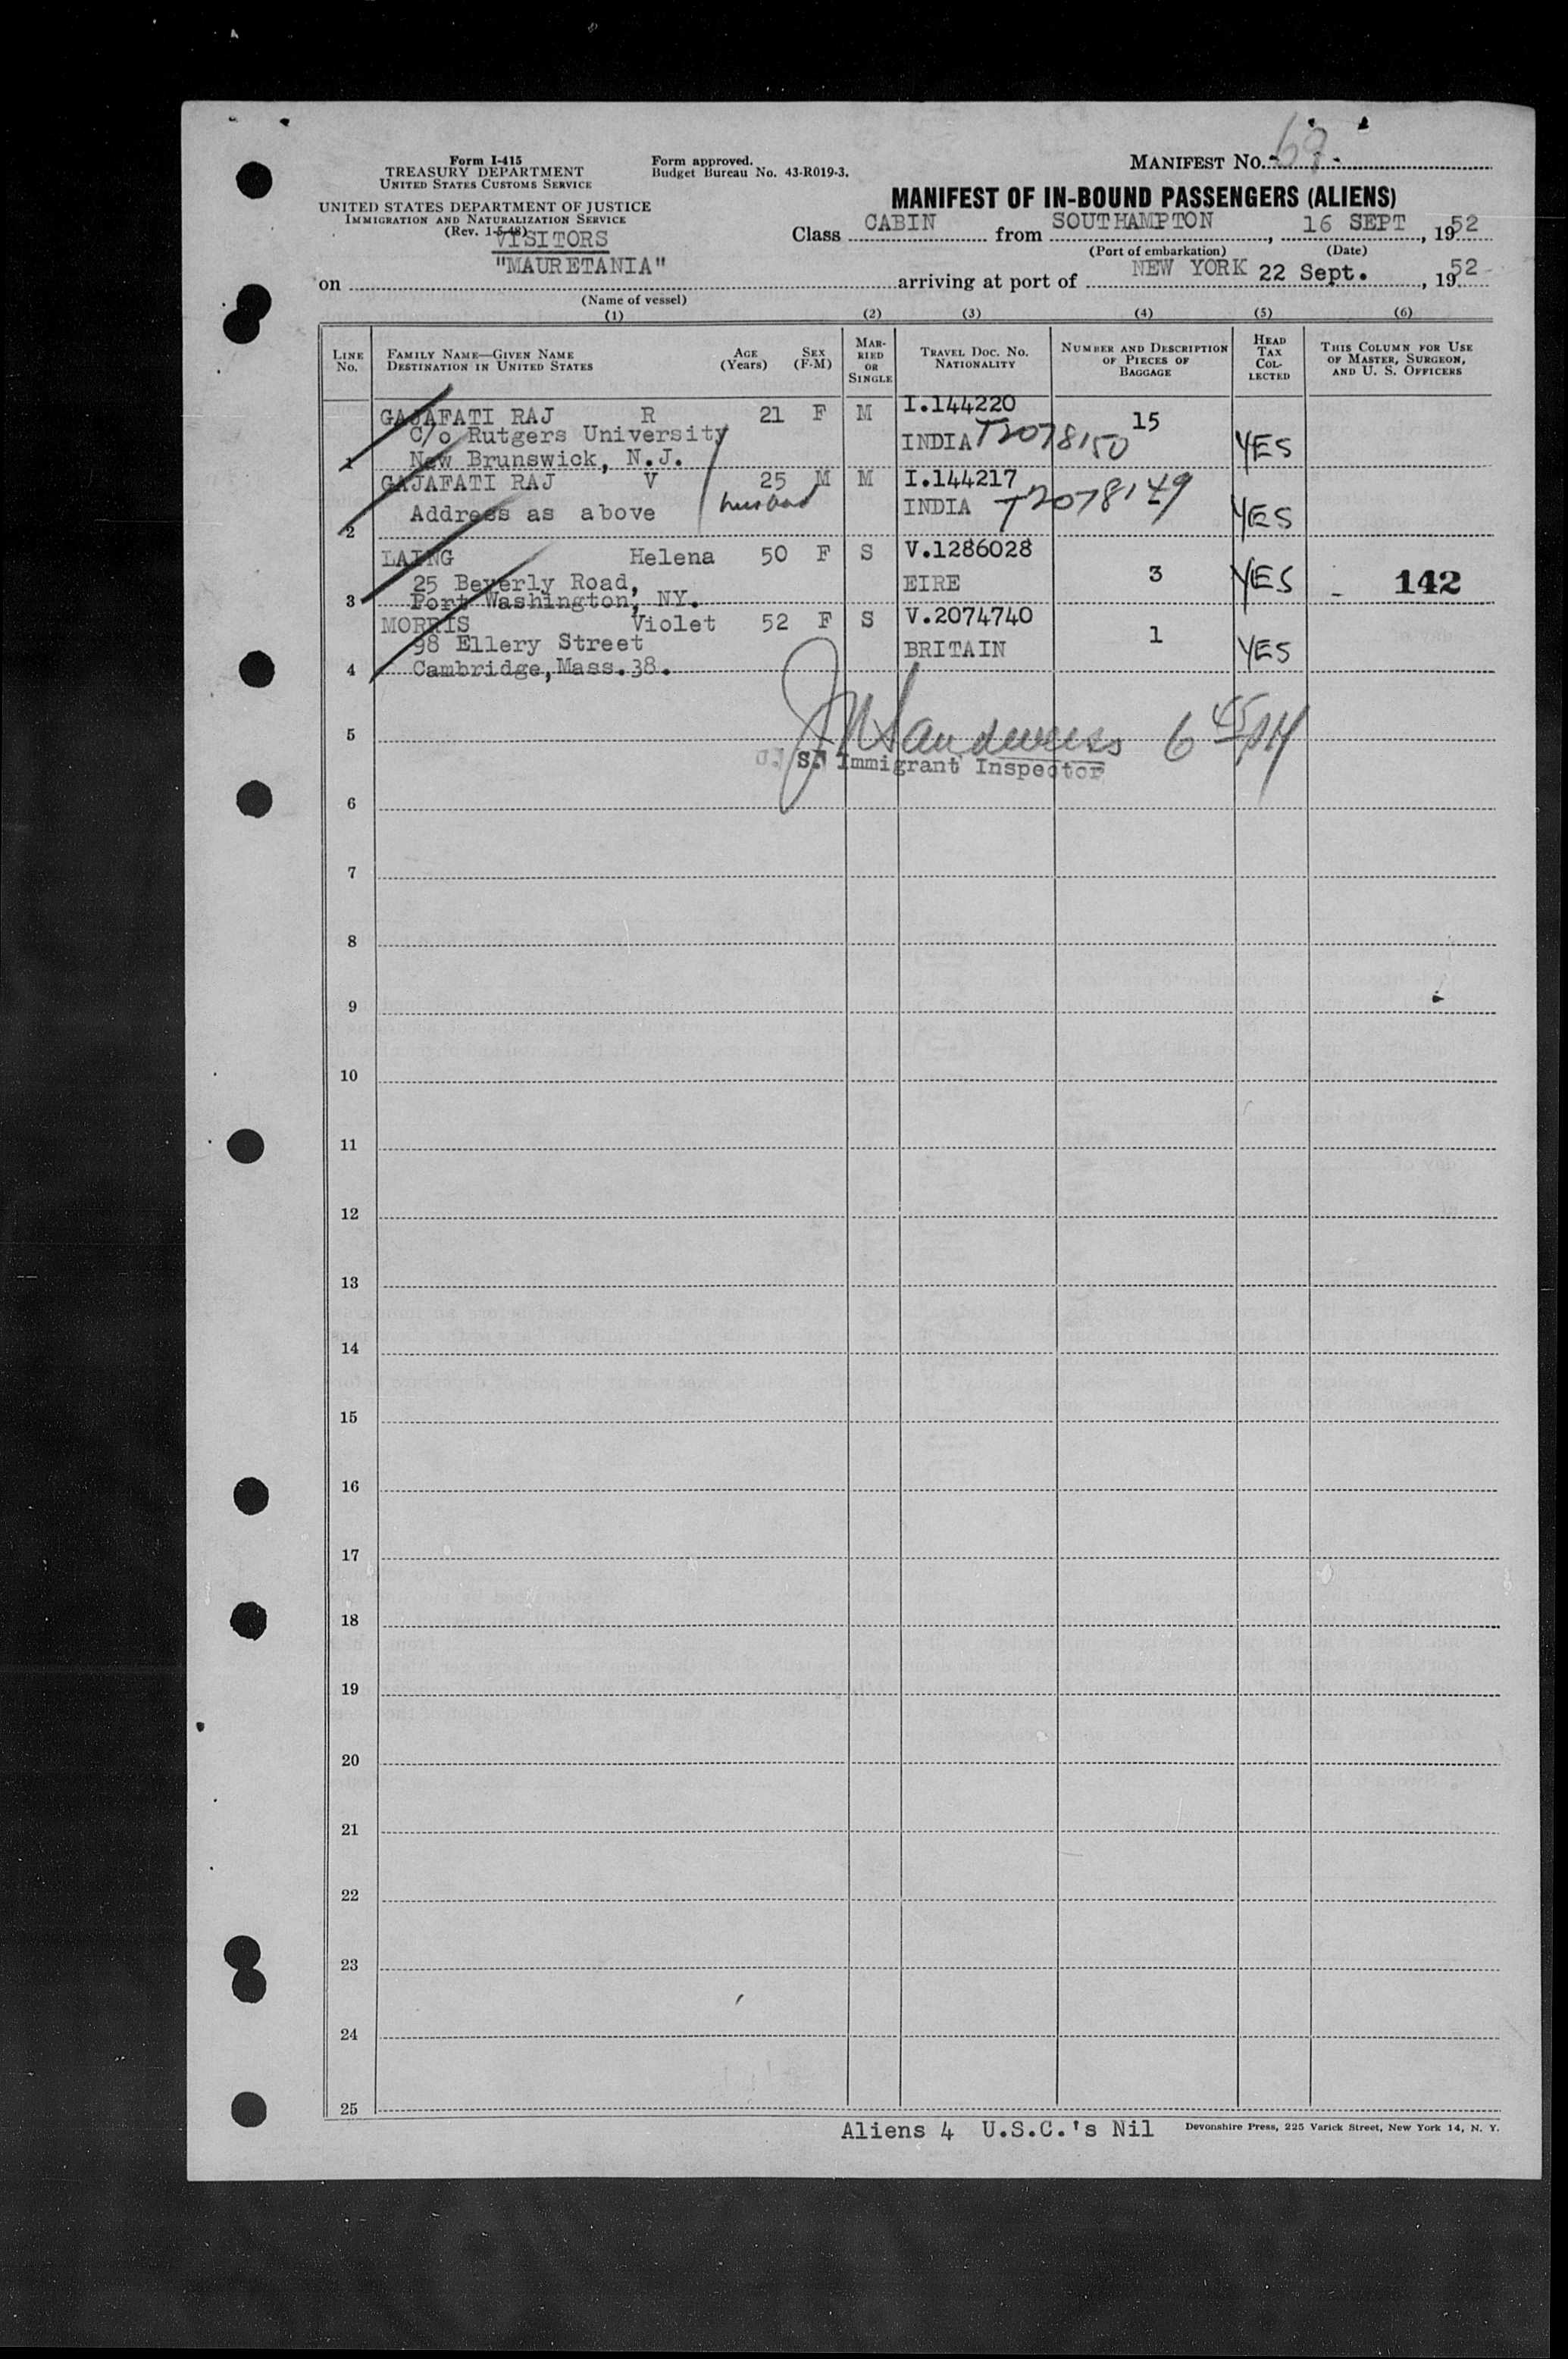 Form I-415
TREASURY DEPARTMENT
UNITED STATES CUSTOMS SERVICE
UNITED STATES DEPARTMENT OF JUSTICE
IMMIGRATION AND NATURALIZATION SERVICE
(Rev. 1-5-48)
VISITORS
Form approved.
Budget Bureau No. 43-R019-3.
MANIFEST NO. 69
MANIFEST OF IN-BOUND PASSENGERS (ALIENS)
Class CABIN from SOUTHAMPTON, 16 SEPT, 1952
(Port of embarkation) (Date)
on "MAURETANIA" arriving at port of NEW YORK 22 Sept., 1952
(Name of vessel)
(1) (2) (3) (4) (5) (6)
LINE NO. FAMILY NAME—GIVEN NAME DESTINATION IN UNITED STATES AGE (Years) SEX (F-M) MARRIED OR SINGLE TRAVEL DOC. NO. NATIONALITY NUMBER AND DESCRIPTION OF PIECES OF BAGGAGE HEAD TAX COLLECTED THIS COLUMN FOR USE OF MASTER, SURGEON, AND U. S. OFFICERS
GAJAFATI RAJ R 21 F M I.144220 15
C/o Rutgers University INDIA T2078150 YES
1 New Brunswick, N.J.
GAJAFATI RAJ V 25 M M I.144217
husband
Address as above INDIA T2078149 YES
2
LAING Helena 50 F S V.1286028
25 Beverly Road, EIRE 3 YES 142
3 Port Washington, NY.
MORRIS Violet 52 F S V.2074740
98 Ellery Street BRITAIN 1 YES
4 Cambridge, Mass.38.
5 6 45 PM
U. S. Immigrant Inspector
6
7
8
9
10
11
12
13
14
15
16
17
18
19
20
21
22
23
24
25
Aliens 4 U.S.C.'s Nil Devonshire Press, 225 Varick Street, New York 14, N. Y.